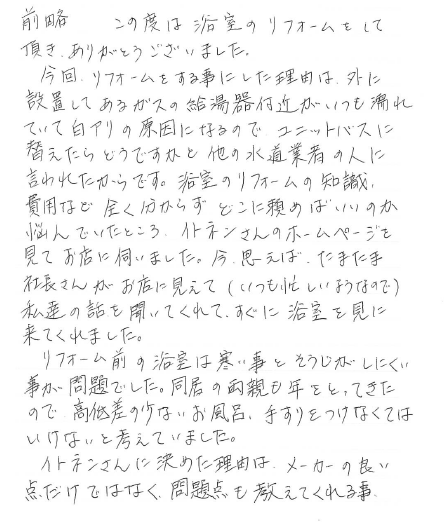 前略　この度は浴室のリフォームをして
頂き、ありがとうございました。
今回、リフォームをする事にした理由は、外に
設置してあるガスの給湯器付近がいつも濡れ
ていて白アリの原因になるので、ユニットバスに
替えたらどうですかと他の水道業者の人に
言われたからです。浴室のリフォームの知識、
費用など全く分からず、どこに頼めばいいのか
悩んでいたところ、イトネンさんのホームページを
見てお店に伺いました。今、思えば、たまたま
社長さんがお店に見えて（いつも忙しいようなので）
私達の話を聞いてくれて、すぐに浴室を見に
来てくれました。
リフォーム前の浴室は寒い事とそうじがしにくい
事が問題でした。同居の両親も年をとってきた
ので、高低差の少ないお風呂、手すりをつけなくては
いけないと考えていました。
イトネンさんに決めた理由は、メーカーの良い
点だけではなく、問題点も教えてくれる事、